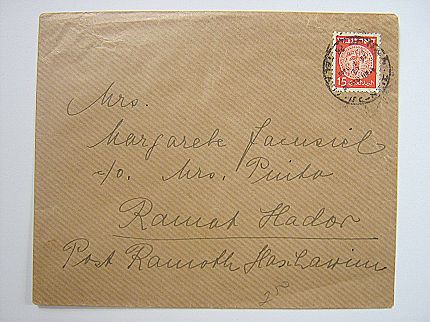 15
Mrs.
Margarete
c/o. Mrs. Pinto
Ramat Hador
Post Ramoth Hashawim
250